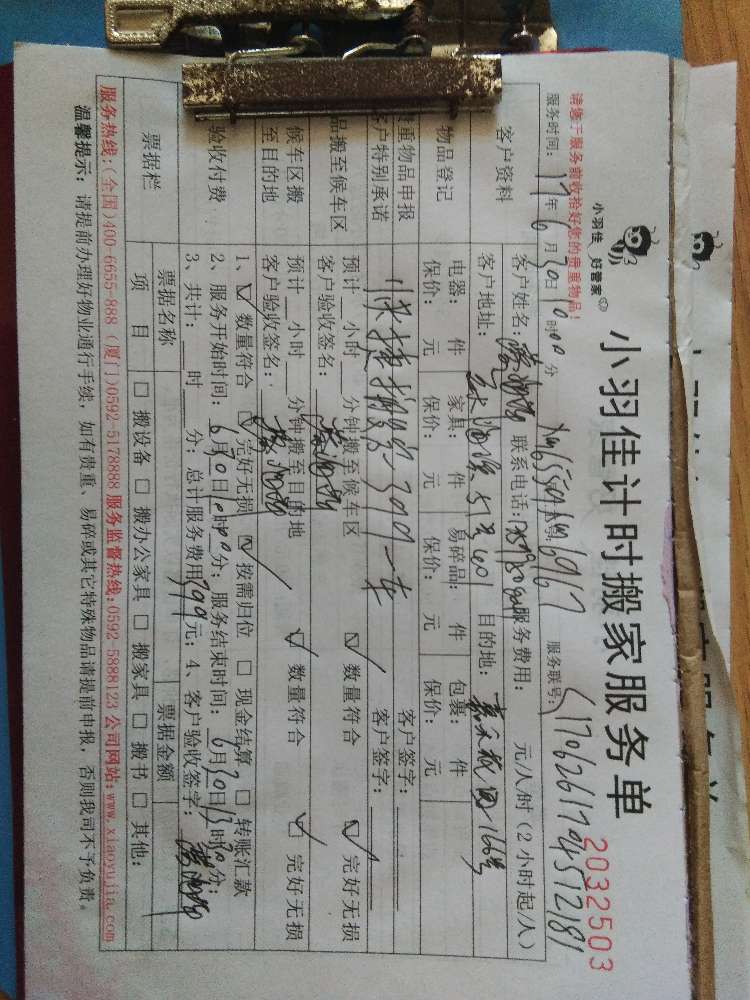 小羽佳 好管家
小羽佳计时搬家服务单
2032503
请您于服务前收拾好您的贵重物品！
服务时间：17年6月30日10时00分 服务联号：
客户资料
客户姓名： 联系电话： 服务费用： 元/人/时(2小时起/人)
客户地址： 目的地：
物品登记
电器： 件 家具： 件 易碎品： 件 包裹： 件
保价： 元 保价： 元 保价： 元 保价： 元
贵重物品申报 客户签字：
客户特别承诺 快捷搬家399一车 客户签字：
品搬至候车区
预计 小时 分钟搬至候车区 数量符合 完好无损
客户验收签名：
候车区搬至目的地
预计 小时 分钟搬至目的地 数量符合 完好无损
客户验收签名：
验收付费
1、 数量符合 完好无损 按需归位 现金结算 转账汇款
2、服务开始时间：6月30日10时00分；服务结束时间：6月30日13时30分；
3、共计： 时 分；总计服务费用399元；4、客户验收签字：
票据栏
票据名称 票据金额
项目 搬设备 搬办公家具 搬家具 搬书 其他：
服务热线：(全国)400-6655-888 (厦门)0592-5178888 服务监督热线：0592-5888123 公司网站：www.xiaoyujia.com
温馨提示：请提前办理好物业通行手续，如有贵重、易碎或其它特殊物品请提前申报，否则我司不予负责。